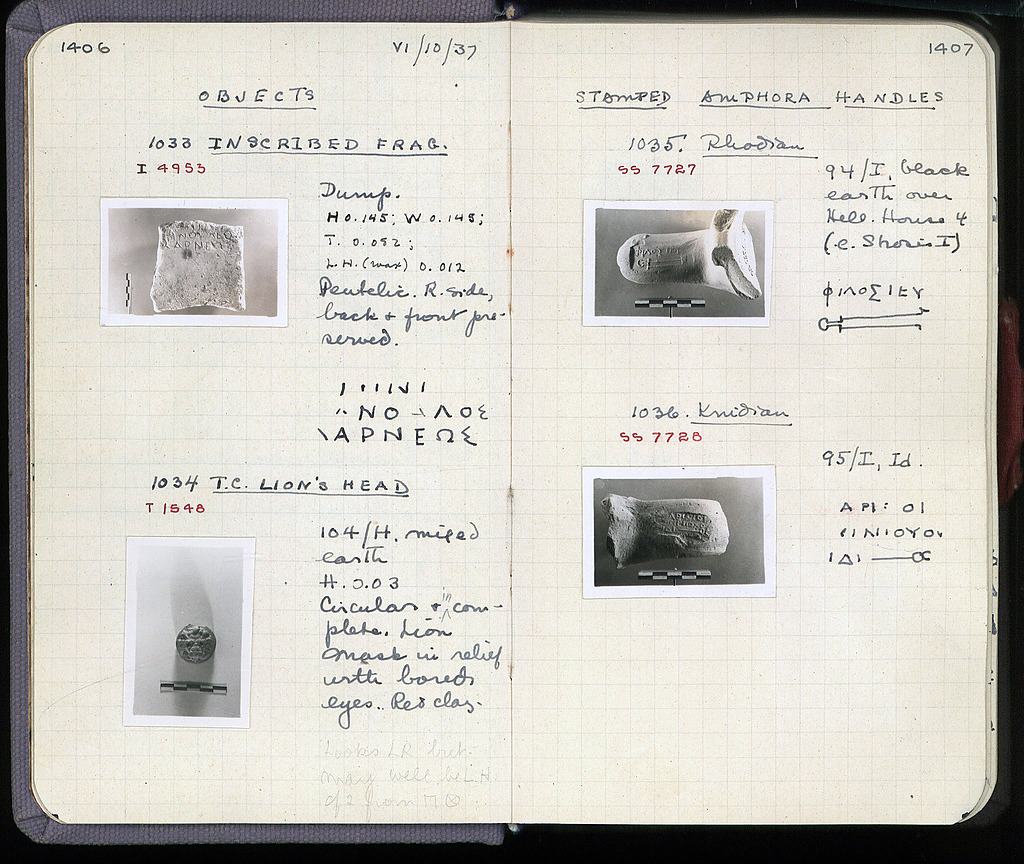 1406
VI/10/37
OBJECTS
1033 INSCRIBED FRAG.
I 4953
Dump.
H 0.145; W 0.145;
T. 0.052;
L.H. (max) 0.012
Pentelic. R. side,
back + front pre-
served.
ΝΟ ΛΟΣ
ΑΡΝΕΩΣ
1034 T.C. LION'S HEAD
T 1548
104/H, mixed
earth
H. 0.03
Circular + in com-
plete. Lion
mask in relief
with bored
eyes. Red clay.
Looks LR but
may well be L.H.
1407
STAMPED AMPHORA HANDLES
1035. Rhodian
SS 7727
94/I, black
earth over
Hell. House 4
ΦΙΛΟΣΙΕΥ
1036. Knidian
SS 7728
95/I, Id.
ΑΡΙ: ΟΙ